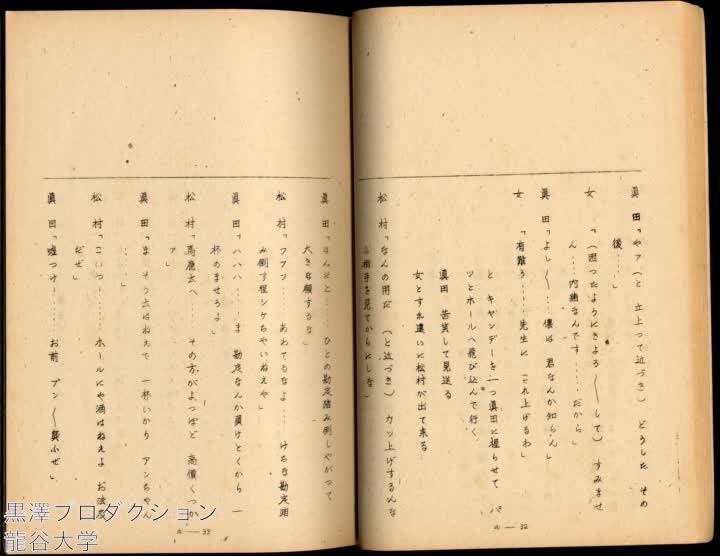 眞田「やァ（と 立上つて近づき） どうした その
後……」
女「（困つたようにきよろ〱して） すみませ
ん……内緒なんです……だから」
眞田「よし〱 僕は 君なんか知らん」
女「有難う……先生に これ上げるわ」
と キャンデーを一つ眞田に握らせて パ
ッとホールへ飛び込んで行く
眞田 苦笑して見送る
女とすれ違いに松村が出て来る
松村「なんの用だ （と近づき） カツ上げするんな
相手を見てからにしな」
ル—32
眞田「なんだと…… ひとの勘定踏み倒しやがつて
大きな顔するな」
松村「フフフ…… あわてるなよ…… けちな勘定踏
み倒す程シケちやいねえや」
眞田「ハハハ……ま 勘定なんか負けとくから 一
杯のませろよ」
松村「馬鹿云へ…… その方がよつぽど 高價くつか
ァ」
眞田「ま そう云はねえで 一杯いかう アンちやん
……」
松村「こいつ…… ホールにや酒はねえよ お法度
だぜ」
眞田「嘘つけ…… お前 プン〱臭ふぜ」
ル—33
黒澤プロダクション
龍谷大学